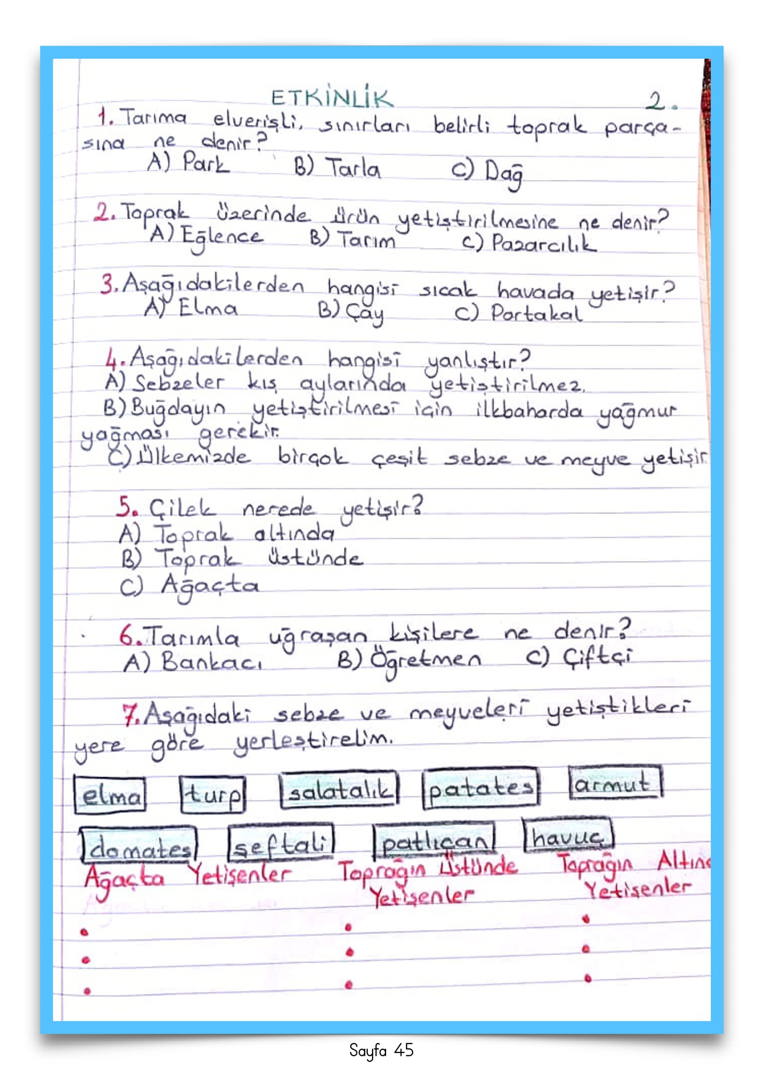 ETKİNLİK 2.
1. Tarıma elverişli, sınırları belirli toprak parça-
sına ne denir?
A) Park B) Tarla C) Dağ
2. Toprak üzerinde ürün yetiştirilmesine ne denir?
A) Eğlence B) Tarım C) Pazarcılık
3. Aşağıdakilerden hangisi sıcak havada yetişir?
A) Elma B) Çay C) Portakal
4. Aşağıdakilerden hangisi yanlıştır?
A) Sebzeler kış aylarında yetiştirilmez.
B) Buğdayın yetiştirilmesi için ilkbaharda yağmur
yağması gerekir.
C) Ülkemizde birçok çeşit sebze ve meyve yetişir
5. Çilek nerede yetişir?
A) Toprak altında
B) Toprak üstünde
C) Ağaçta
6. Tarımla uğraşan kişilere ne denir?
A) Bankacı B) Öğretmen C) Çiftçi
7. Aşağıdaki sebze ve meyveleri yetiştikleri
yere göre yerleştirelim.
elma turp salatalık patates armut
domates şeftali patlıcan havuç
Ağaçta Yetişenler Toprağın Üstünde Toprağın Altınd
Yetişenler Yetişenler
Sayfa 45